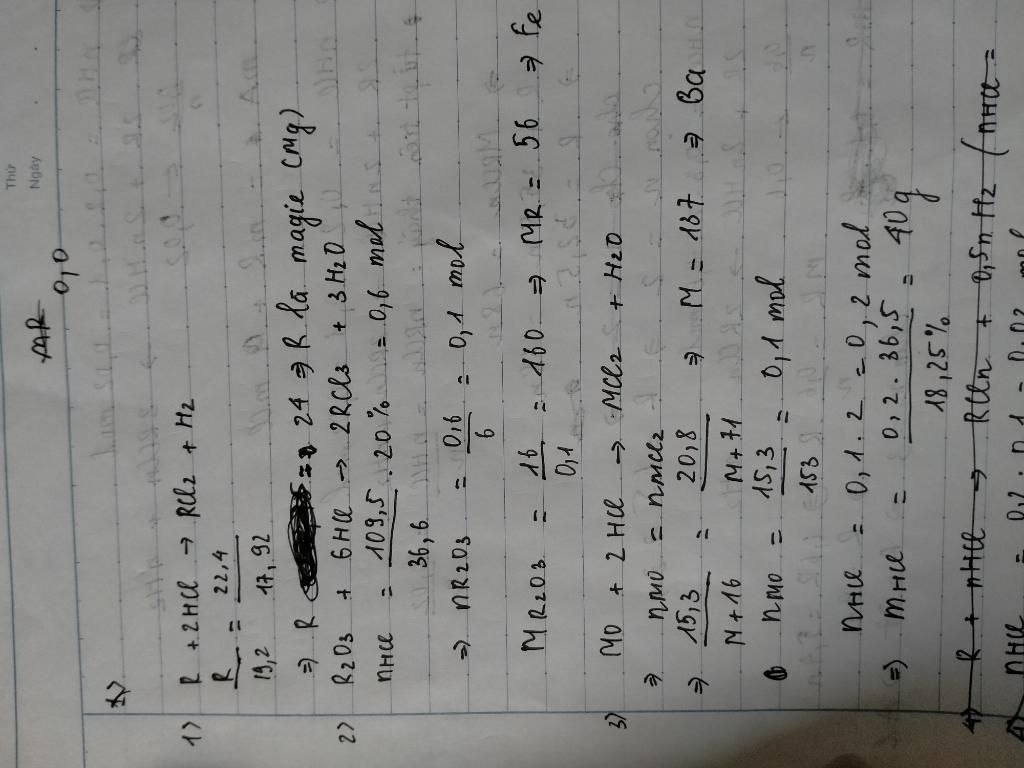 Thứ
Ngày
0,0
1) R + 2HCl → RCl2 + H2
R/19,2 = 22,4/17,92
⇒ R = 24 ⇒ R là magie (Mg)
2) R2O3 + 6HCl → 2RCl3 + 3H2O
nHCl = 109,5/36,6 . 20% = 0,6 mol
⇒ nR2O3 = 0,6/6 = 0,1 mol
MR2O3 = 16/0,1 = 160 ⇒ MR = 56 ⇒ Fe
3) MO + 2HCl → MCl2 + H2O
⇒ nMO = nMCl2
⇒ 15,3/M+16 = 20,8/M+71 ⇒ M = 137 ⇒ Ba
nMO = 15,3/153 = 0,1 mol
nHCl = 0,1 . 2 = 0,2 mol
⇒ mHCl = 0,2 . 36,5/18,25% = 40g
4) R + nHCl → RCln + 0,5n H2 (nHCl =